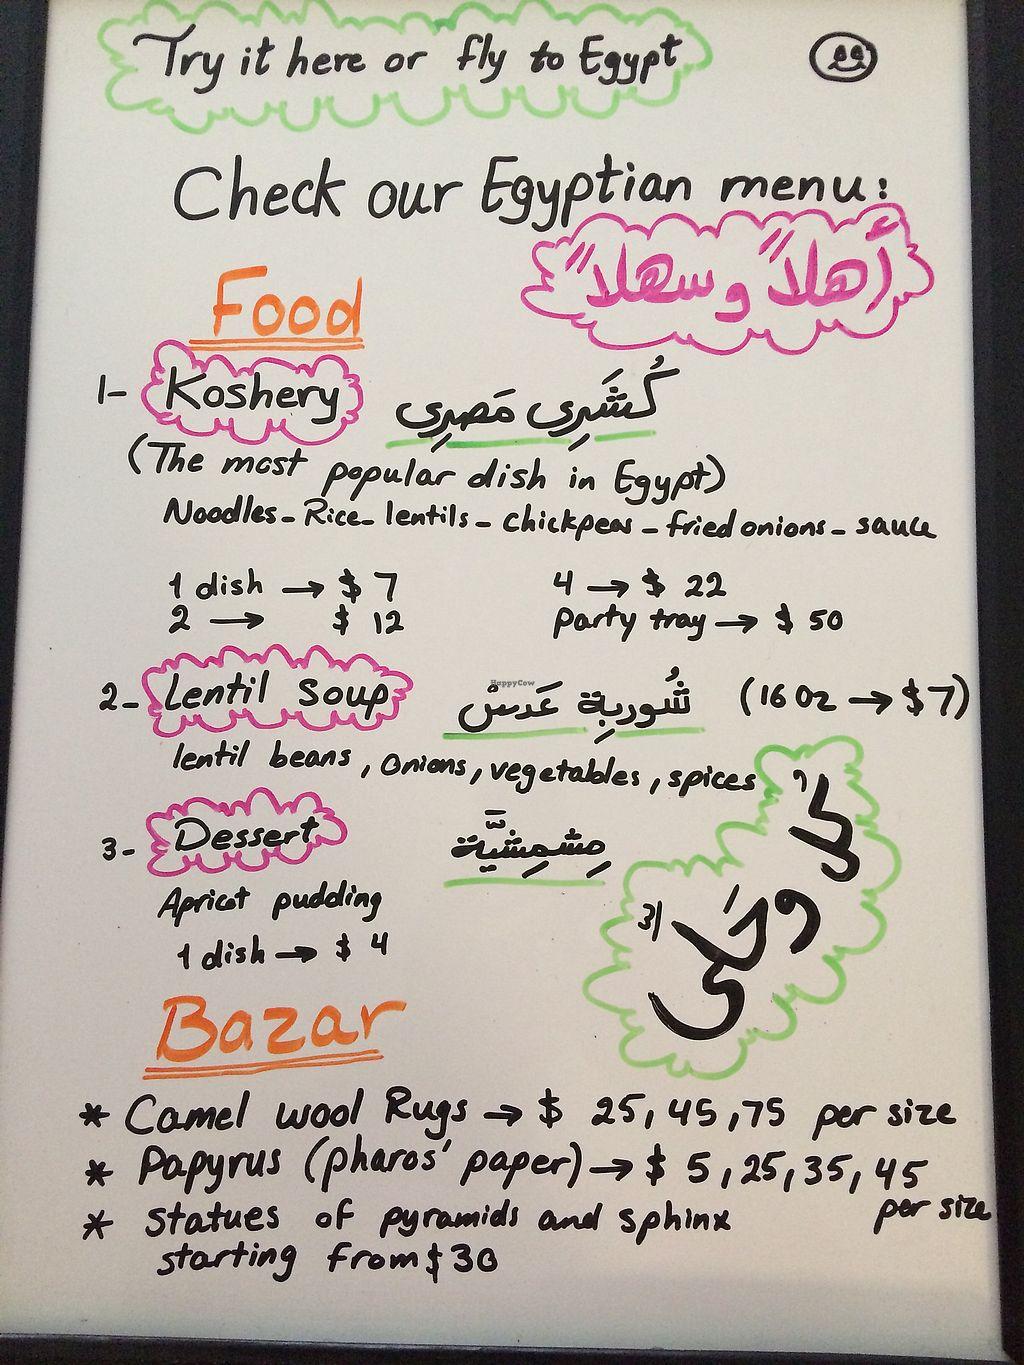 Try it here or fly to Egypt
Check our Egyptian menu:
أهلاً وسهلاً
Food
1- Koshery كُشَرِى مَصرِى
(The most popular dish in Egypt)
Noodles - Rice - lentils - chickpeas - fried onions - sauce
1 dish → $ 7 4 → $ 22
2 → $ 12 party tray → $ 50
2- Lentil Soup شُوربِة عَدسْ (16 oz → $ 7)
HappyCow
lentil beans, onions, vegetables, spices
3- Dessert مِشمِشيَّة
Apricot pudding
1 dish → $ 4
كُل وحَلى
Bazar
* Camel wool Rugs → $ 25, 45, 75 per size
* Papyrus (pharos' paper) → $ 5, 25, 35, 45
per size
* statues of pyramids and sphinx
starting from $ 30